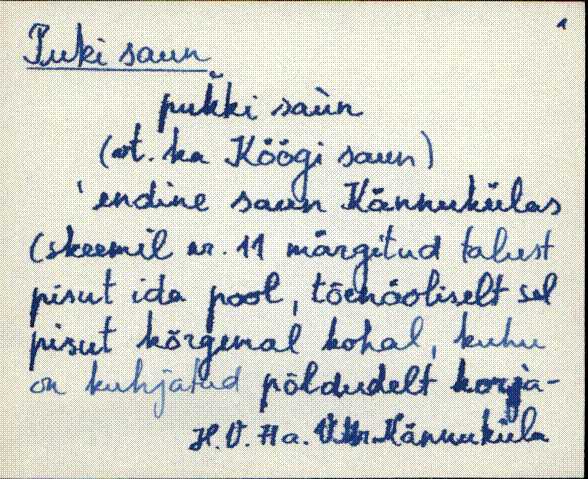 Puki saun
pukki saùn
(vt. ka Köögi saun)
'endine saun Kännukülas
(skeemil nr. 11 märgitud talust
pisut ida pool, tõenäoliselt sel
pisut kõrgemal kohal, kuhu
on kuhjatud põldudelt korja-
H.V. Ha. Kännuküla